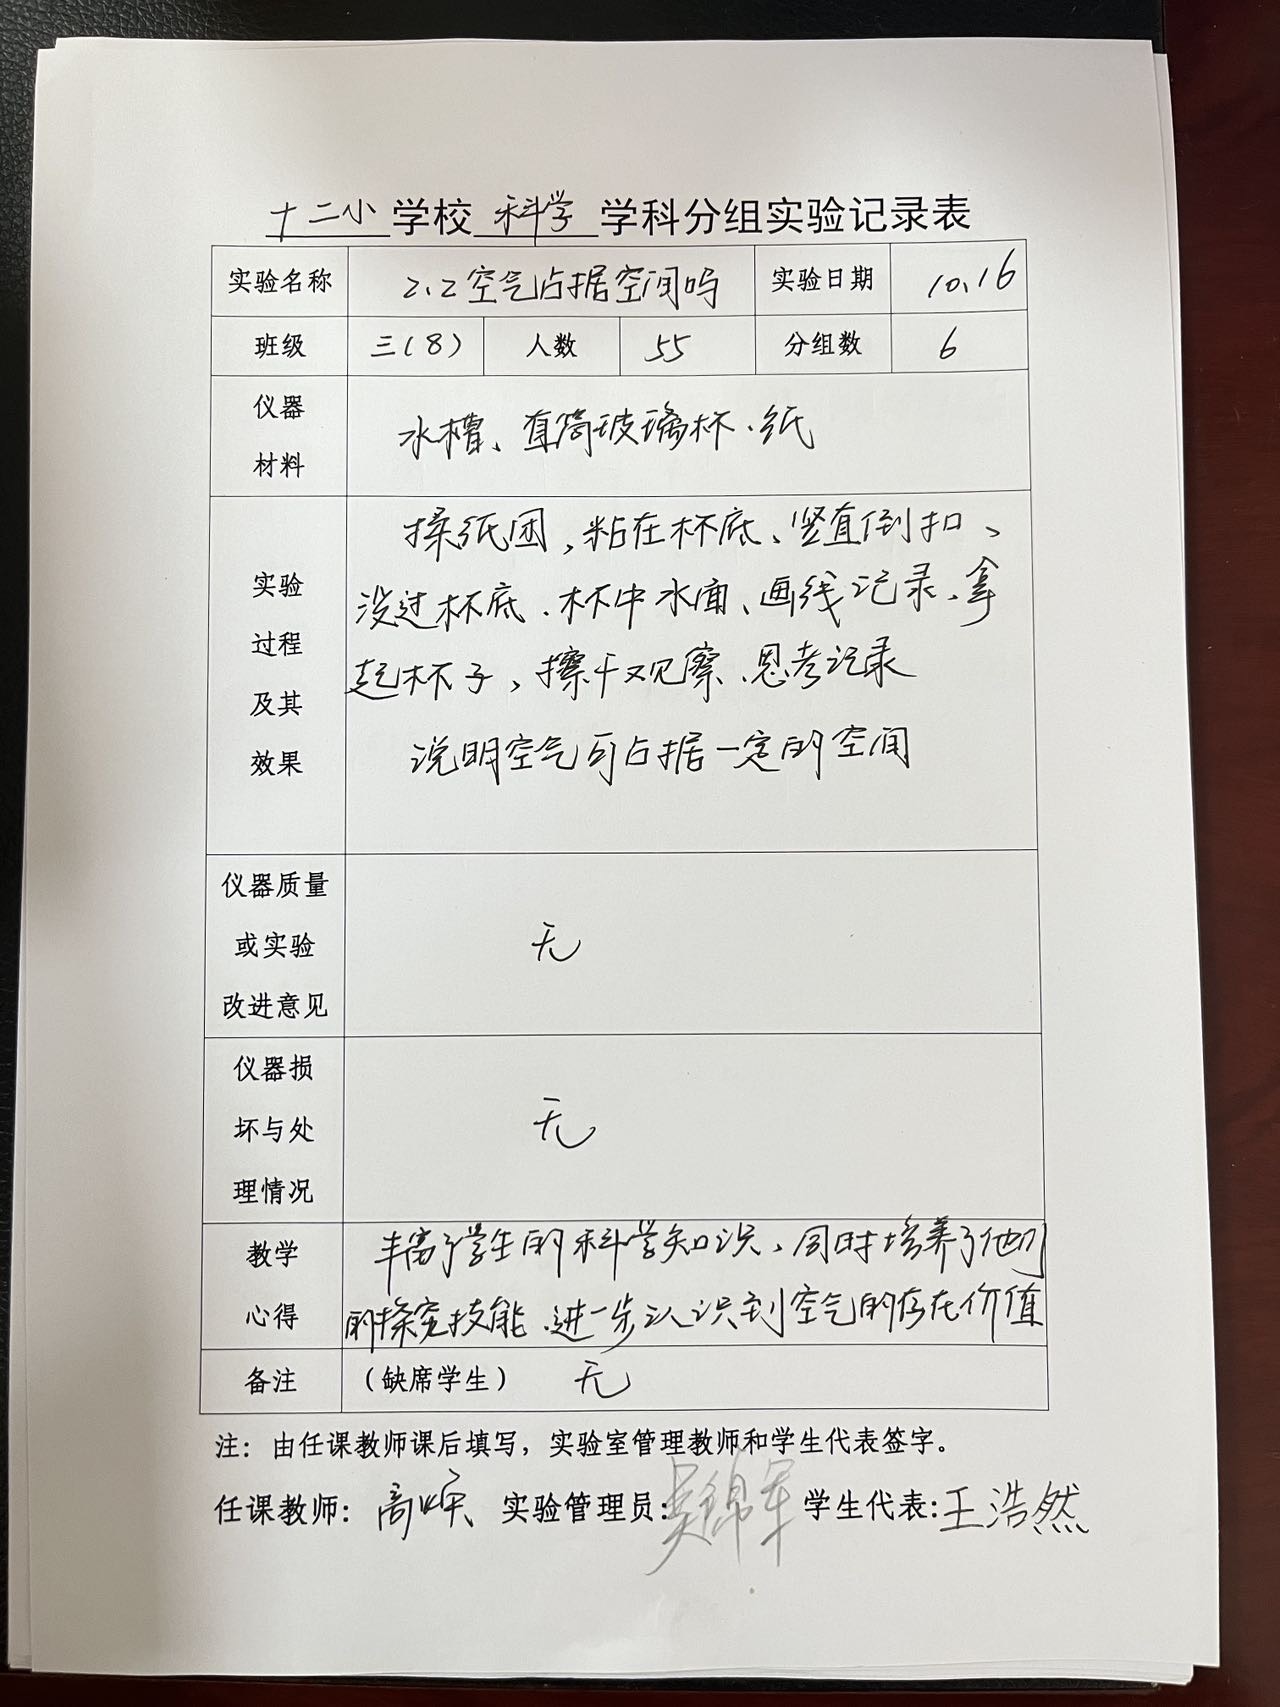 十二小 学校 科学 学科分组实验记录表
实验名称 2.2空气占据空间吗 实验日期 10.16
班级 三(8) 人数 55 分组数 6
仪器
材料
水槽、直筒玻璃杯、纸
实验
过程
及其
效果
揉纸团,粘在杯底、竖直倒扣、
没过杯底、杯中水面、画线记录、拿
起杯子,擦干观察、思考记录
说明空气可占据一定的空间
仪器质量
或实验
改进意见
无
仪器损
坏与处
理情况
无
教学
心得
丰富了学生的科学知识、同时培养了他们
的探究技能、进一步认识到空气的存在价值
备注 (缺席学生) 无
注:由任课教师课后填写,实验室管理教师和学生代表签字。
任课教师: 高 实验管理员: 吴锦军 学生代表:王浩然